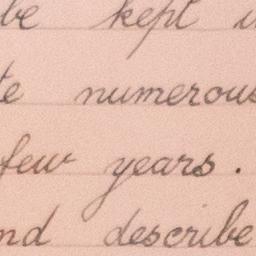 be kept i
te numerous
few years.
nd describe